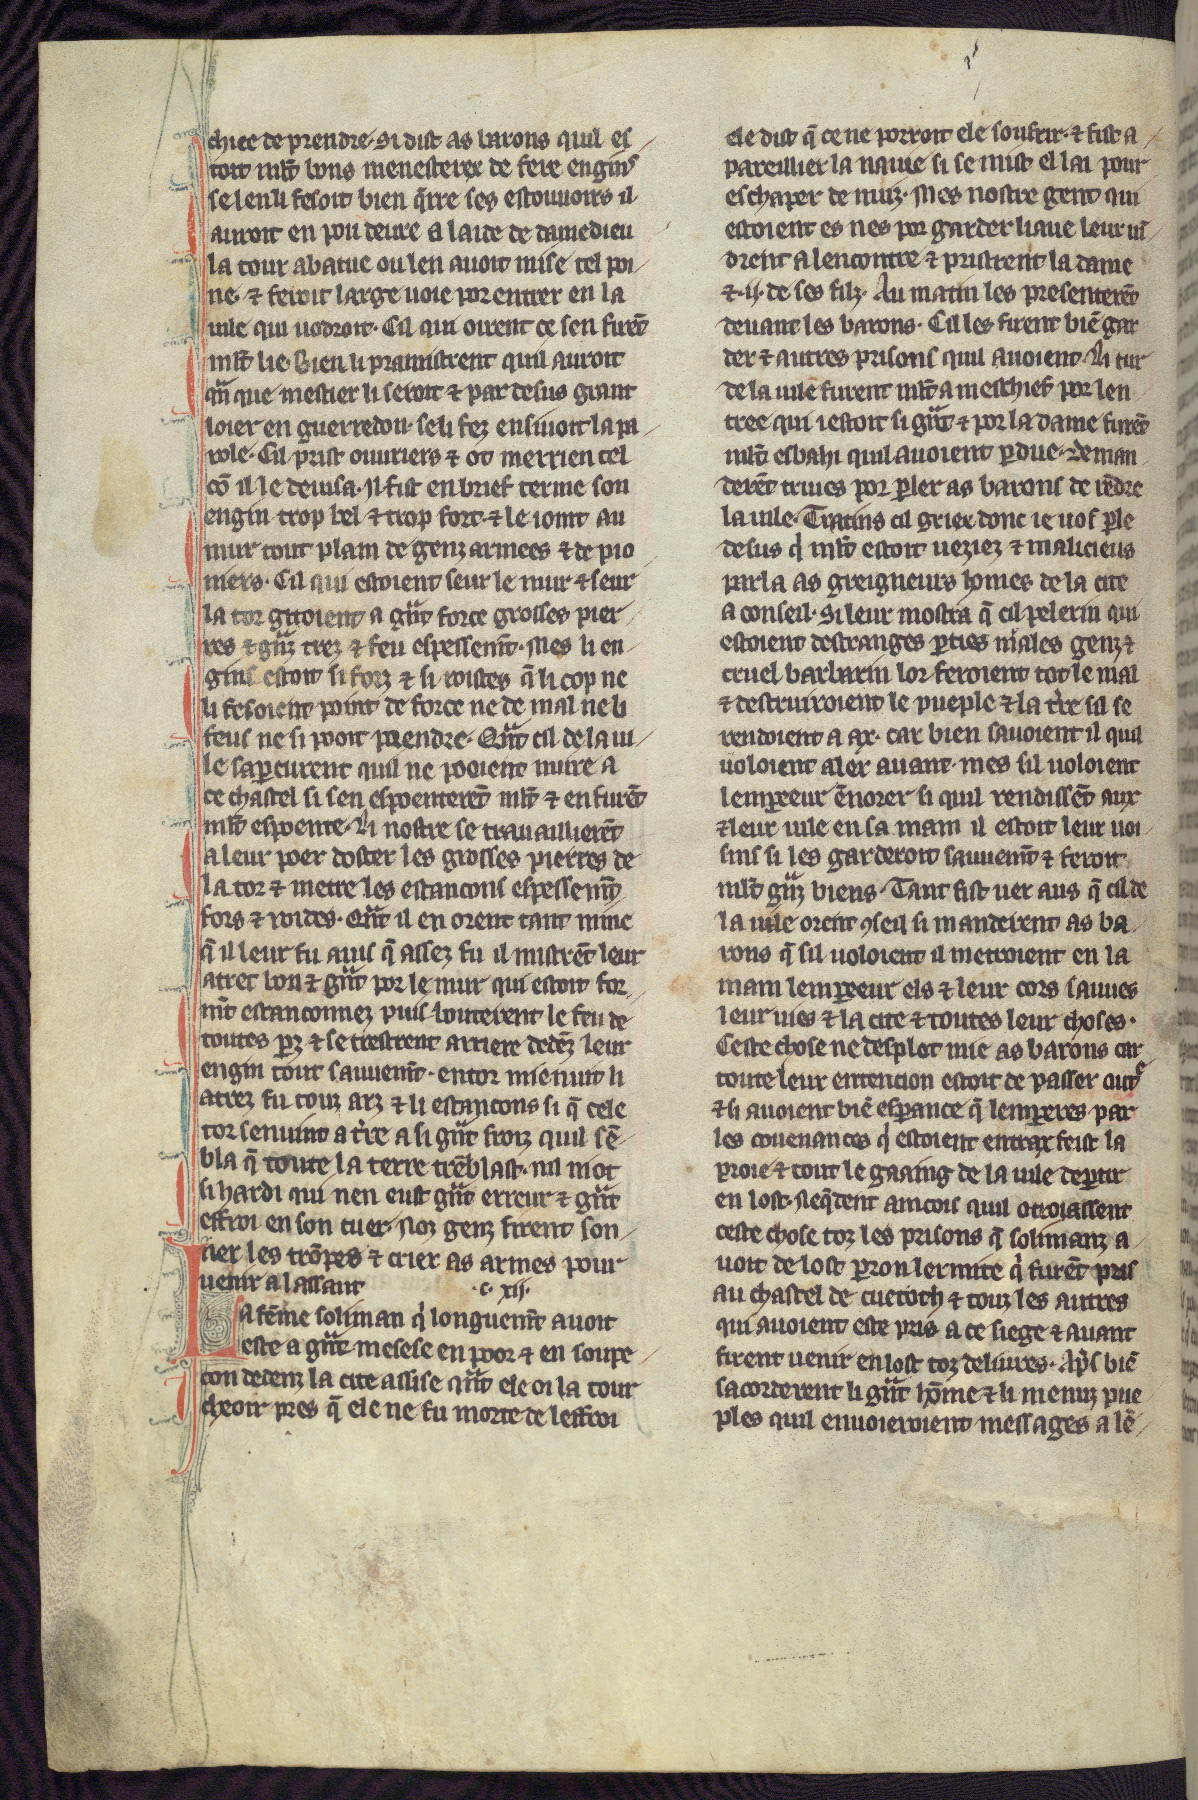 chiee de prendre. Si dist as barons quil es
toit ml̃t bons menesterex de fere engins
se len li fesoit bien q̃rre ses estouuoirs il
auroit en pou deure a laide de damedieu
la tour abatue ou len auoit mise tel poi
ne. ⁊ feroit large uoie por entrer en la
uile qui uodroit. Cil qui oirent ce sen furẽt
ml̃t lie. Bien li pramistrent quil auroit
qñ que mestier li seroit ⁊ par desus grant
loier en guerredon. se li fez ensiuoit la pa
role. Cil prist ouuriers ⁊ ot merrien tel
cõ il le deuisa. Il fist en brief terme son
engin trop bel ⁊ trop fort. ⁊ le ioint au
mur tout plain de genz armees ⁊ de pio
niers. Cil qui estoient seur le mur ⁊ seur
la tor gitoient a gñt force grosses pier
res ⁊ gñz trez ⁊ feu espessemt̃. Mes li en
gins estoit si forz ⁊ si roistes q̃ li cop ne
li fesoient point de force ne de mal ne li
feus ne si pooit prendre. Qñt cil de la ui
le sap̱curent quil ne pooient nuire a
ce chastel si sen espoenterẽt ml̃t ⁊ en furẽt
ml̃t espoente. Li nostre se trauaillierẽt
a leur poer doster les grosses pierres de
la tor ⁊ metre les estancons espessemt̃
fors ⁊ roides. Qñt il en orent tant mine
q̃ il leur fu auis q̃ assez fu il mistrẽt leur
atret bon ⁊ gñt por le mur qui estoit for
mt̃ estanconnez puis bouterent le feu de
toutes p̱z ⁊ se trestrent arriere dedẽz leur
engin tout sauuemt̃. entor mienuit li
atrez fu touz arz ⁊ li estancons si q̃ cele
tor senuint a t̃re a si gñt froiz quil sẽ
bla q̃ toute la terre trẽblast. nil niot
si hardi qui nen eust gñt erreur ⁊ gñt
effroi en son cuer. Noz genz firent son
ner les trõpes ⁊ crier as armes pour
uenir a lassaut .c. xij.
La fẽme soliman q̇ longuemt̃ auoit
este a gñt mesese en poor ⁊ en soupe
con dedenz la cite assise qñt ele oi la tour
cheoir pres q̃ ele ne fu morte de leffroi
ele dist q̃ ce ne porroit ele soufrir. ⁊ fist a
pareillier la nauie si se mist el lai pour
eschaper de nuiz. Mes nostre gent qui
estoient es nes por garder liaue leur uĩ
drent a lencontre ⁊ pristrent la dame
⁊ .ij. de ses filz. Au matin les presenterẽt
deuant les barons. Cil les firent biẽ gar
der ⁊ autres prisons quil auoient. Li tur
de la uile furent ml̃t a meschief por len
tree qui iestoit si gñt ⁊ por la dame furẽt
ml̃t esbahi quil auoient p̱due. Deman
derẽt triues por p̱ler as barons de rẽdre
la uile. Tratins cil griex donc ie uos p̱le
desus q̇ ml̃t estoit ueziez ⁊ malicieus
parla as greigneurs homes de la cite
a conseil. Si leur mostra q̃ cil pelerin qui
estoient destranges p̱ties males genz ⁊
cruel barbarin lor feroient tot le mal
⁊ destruiroient le pueple ⁊ la t̃re sil se
rendoient a ax. car bien sauoient il quil
uoloient aler auant. mes sil uoloient
lemp̱eeur ẽnorer si quil rendissẽt aux
⁊ leur uile en sa main il estoit leur uoi
sins si les garderoit sauuemt̃ ⁊ feroit
ml̃t gñz biens. Tant fist uer aus q̃ cil de
la uile orent 9seil si manderent as ba
rons q̃ sil uoloient il metroient en la
main lemp̱eeur els ⁊ leur cors sauues
leur uies ⁊ la cite ⁊ toutes leur choses.
Ceste chose ne desplot mie as barons car
toute leur entencion estoit de passer out̃
⁊ si auoient biẽ esp̱ance q̃ lemp̱eres par
les couenances q̇ estoient entrax feist la
proie ⁊ tout le gaaing de la uile dep̱tir
en lost. Neq̃dent aincois quil otroiassent
ceste chose toz les prisons q̃ solimanz a
uoit de lost p̱ron lermite q̇ furẽt pris
au chastel de cuetoth ⁊ touz les autres
qui auoient este pris a ce siege ⁊ auant
firent uenir en lost toz deliures. Ap̃s biẽ
sacorderent li gñt hõme ⁊ li menuz pue
ples quil enuoieroient messages a lẽ